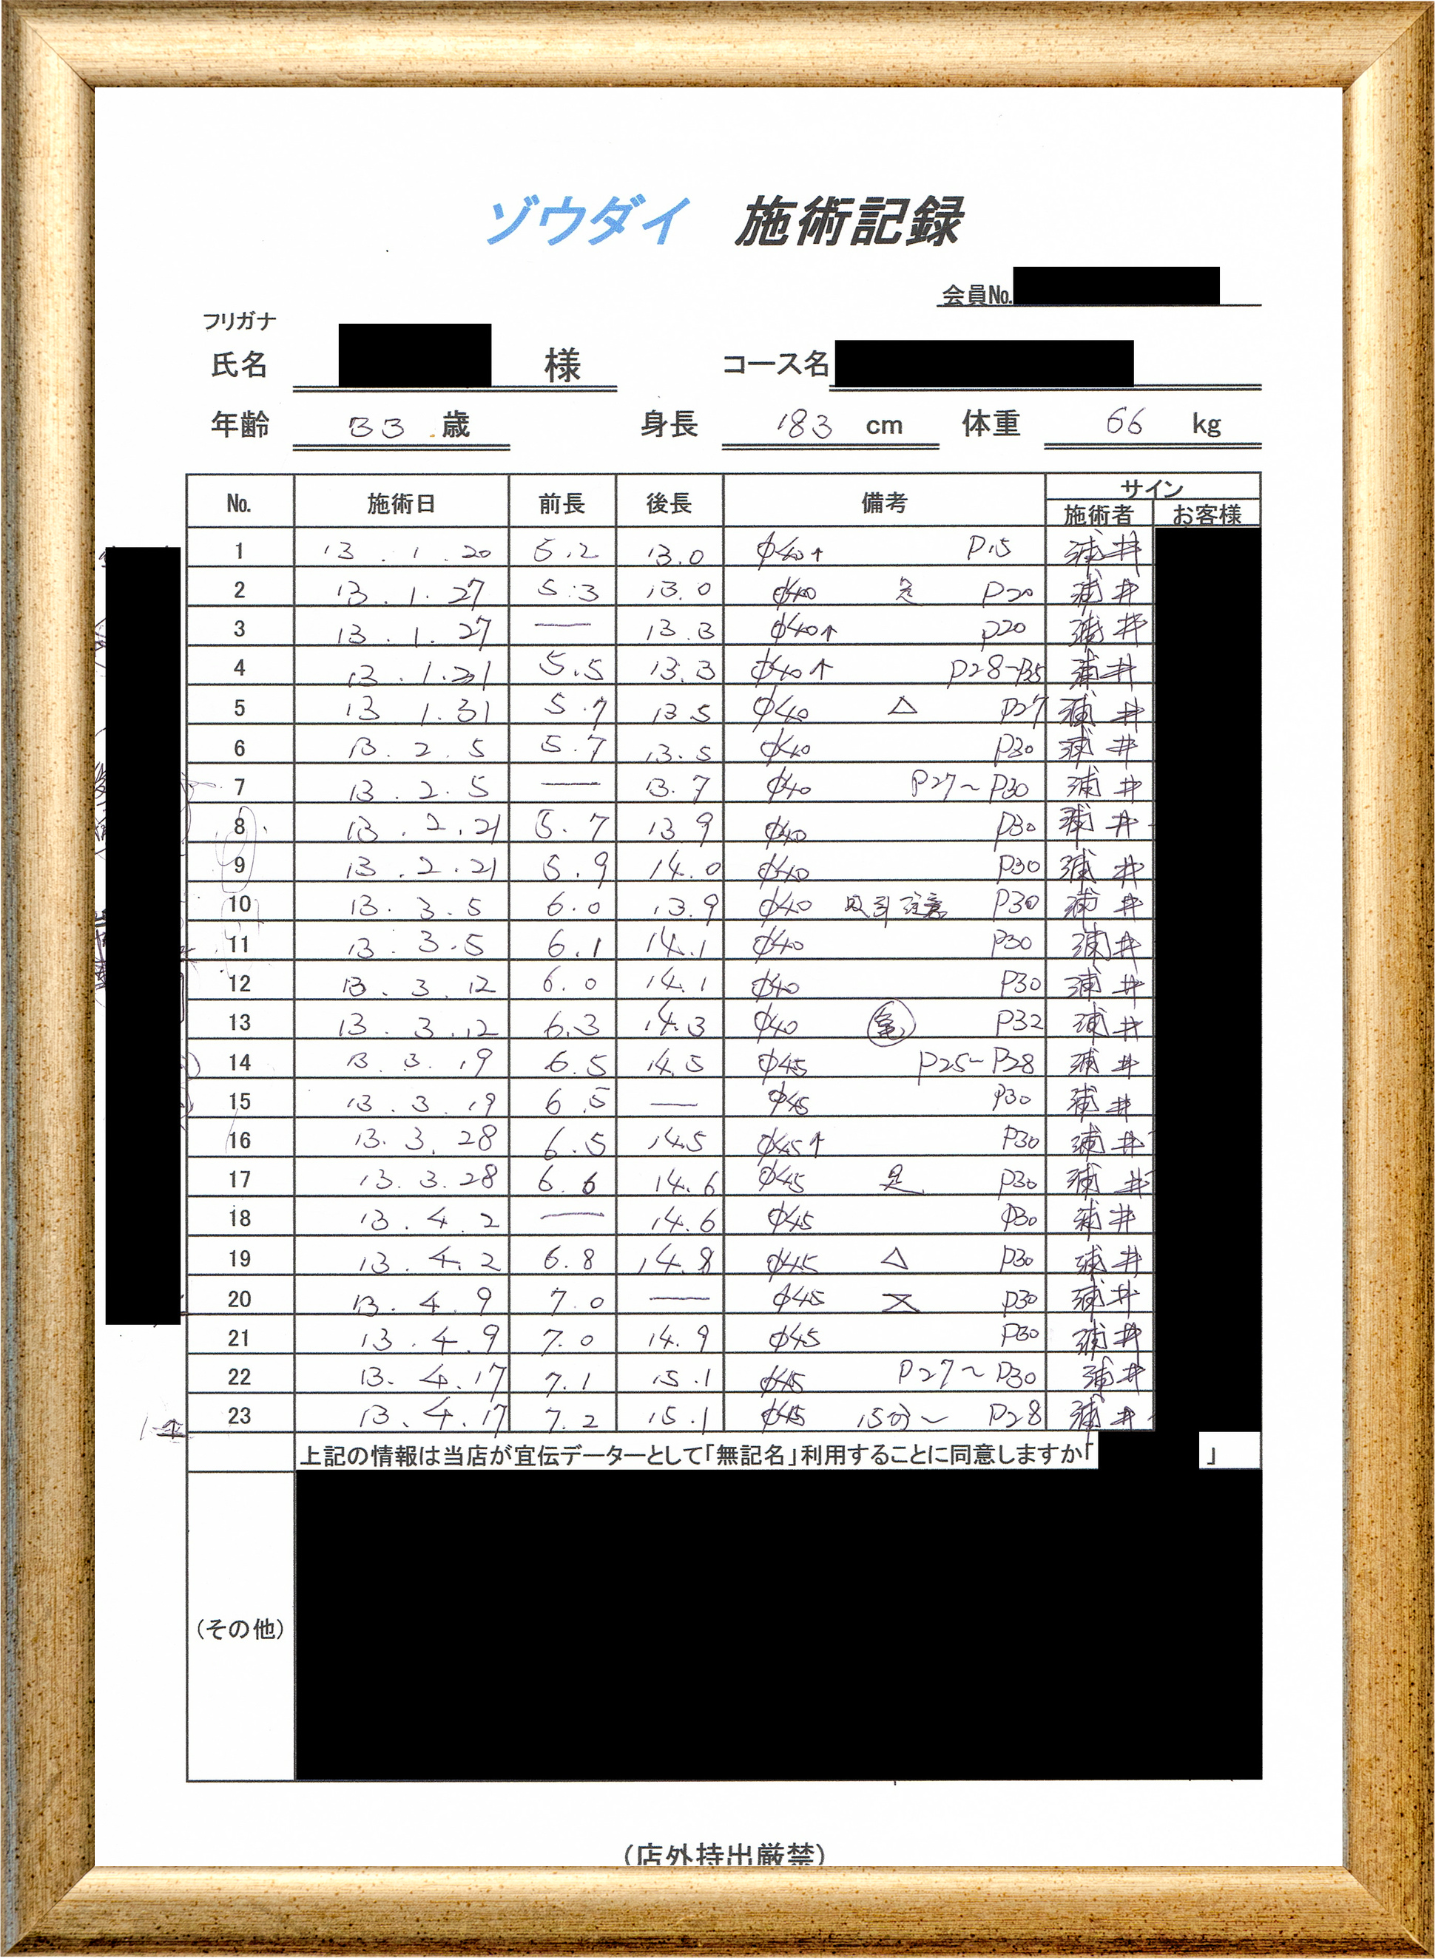 ゾウダイ 施術記録
会員No.
フリガナ
氏名 様 コース名
年齢 33 歳 身長 183 cm 体重 66 kg
No. 施術日 前長 後長 備考 サイン
施術者 お客様
1 13.1.20 5.2 13.0 φ40↑ P15 浦井
2 13.1.27 5.3 13.0 φ40 P20 浦井
3 13.1.27 — 13.3 φ40↑ P20 浦井
4 13.1.31 5.5 13.3 φ40↑ P28~P35 浦井
5 13.1.31 5.7 13.5 φ40 △ P27 浦井
6 13.2.5 5.7 13.5 φ40 P30 浦井
7 13.2.5 — 13.7 φ40 P27~P30 浦井
8 13.2.21 5.7 13.9 φ40 P30 浦井
9 13.2.21 5.9 14.0 φ40 P30 浦井
10 13.3.5 6.0 13.9 φ40 吸引注意 P30 浦井
11 13.3.5 6.1 14.1 φ40 P30 浦井
12 13.3.12 6.0 14.1 φ40 P30 浦井
13 13.3.12 6.3 14.3 φ40 P32 浦井
14 13.3.19 6.5 14.5 φ45 P25~P28 浦井
15 13.3.19 6.5 — φ45 P30 浦井
16 13.3.28 6.5 14.5 φ45↑ P30 浦井
17 13.3.28 6.6 14.6 φ45 P30 浦井
18 13.4.2 — 14.6 φ45 P30 浦井
19 13.4.2 6.8 14.8 φ45 △ P30 浦井
20 13.4.9 7.0 — φ45 P30 浦井
21 13.4.9 7.0 14.9 φ45 P30 浦井
22 13.4.17 7.1 15.1 φ45 P27~P30 浦井
23 13.4.17 7.2 15.1 φ45 15分~ P28 浦井
上記の情報は当店が宣伝データーとして「無記名」利用することに同意しますか「 」
(その他)
(店外持出厳禁)